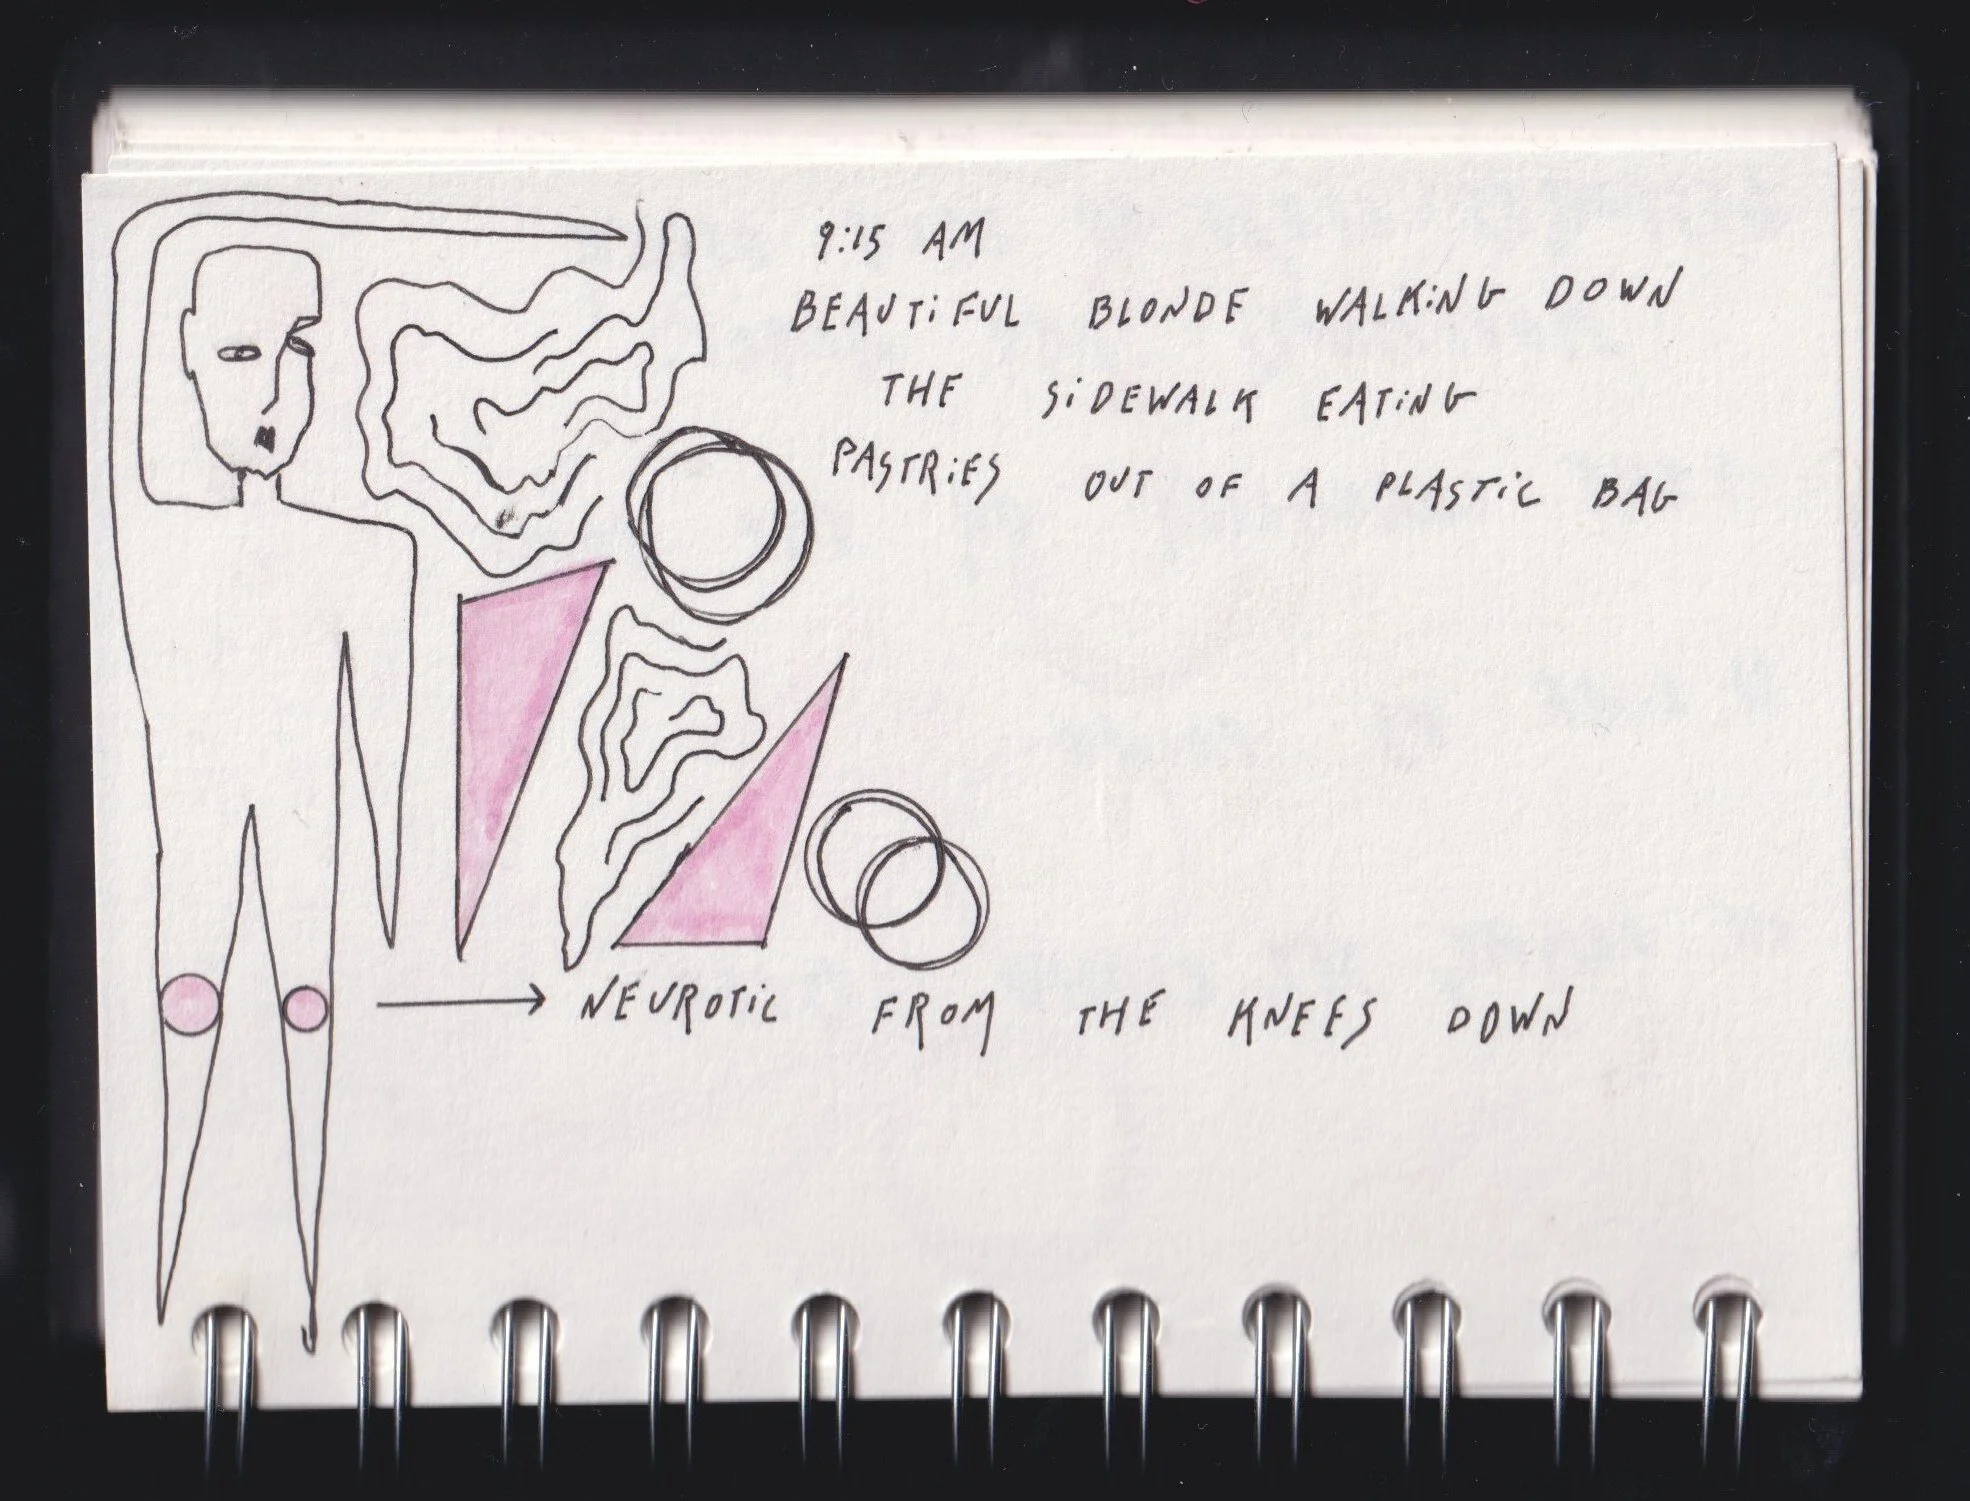 9:15 AM
BEAUTiFUL BLONDE WALKiNG DOWN
THE SiDEWALK EATiNG
PASTRiES OUT OF A PLASTiC BAG
NEUROTiC FROM THE KNEES DOWN